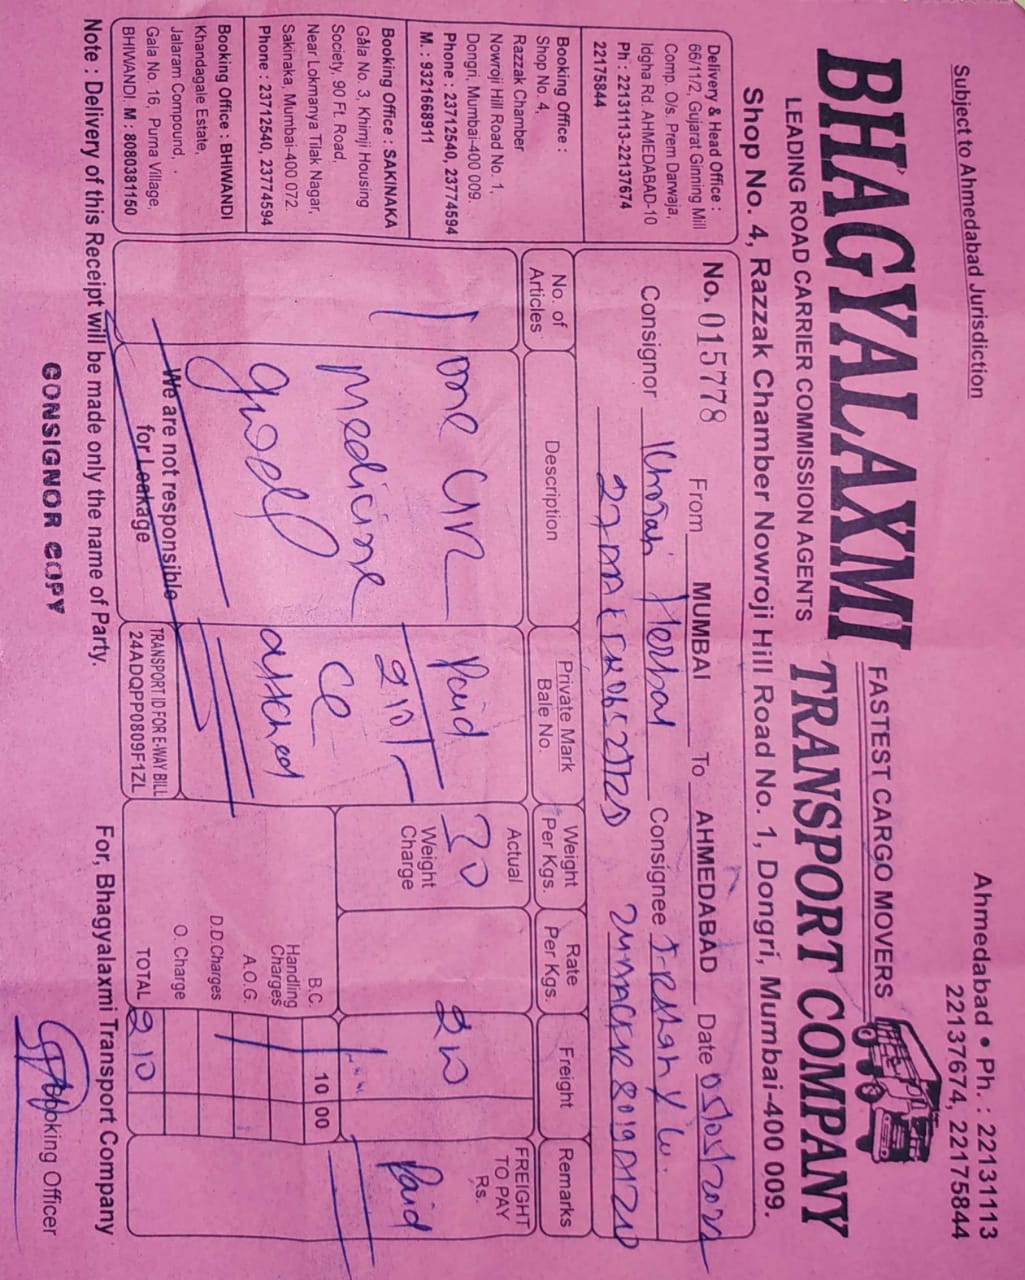 Subject to Ahmedabad Jurisdiction
Ahmedabad • Ph. : 22131113
22137674, 22175844
BHAGYALAXMI
FASTEST CARGO MOVERS
TRANSPORT COMPANY
LEADING ROAD CARRIER COMMISSION AGENTS
Shop No. 4, Razzak Chamber Nowroji Hill Road No. 1, Dongri, Mumbai-400 009.
Delivery & Head Office :
66/11/2, Gujarat Ginning Mill
Comp. O/s. Prem Darwaja,
Idgha Rd. AHMEDABAD-10
Ph : 22131113-22137674
22175844
Booking Office :
Shop No. 4,
Razzak Chamber
Nowroji Hill Road No. 1,
Dongri, Mumbai-400 009.
Phone : 23712540, 23774594
M. : 9321668911
Booking Office : SAKINAKA
Gala No. 3, Khimji Housing
Society, 90 Ft. Road,
Near Lokmanya Tilak Nagar,
Sakinaka, Mumbai-400 072.
Phone : 23712540, 23774594
Booking Office : BHIWANDI
Khandagale Estate,
Jalaram Compound,
Gala No. 16, Purna Village,
BHIWANDI. M : 8080381150
No. 015778 From MUMBAI To AHMEDABAD Date
Consignor Herbal Consignee
No. of Articles Description Private Mark Bale No. Weight Per Kgs. Rate Per Kgs. Freight Remarks
Actual
FREIGHT TO PAY Rs.
one Paid 20 210 Paid
Weight Charge
Medicine 210/-
good attached
B.C. 10 00
Handling Charges
A.O.G.
D.D.Charges
O. Charge
TOTAL 210
We are not responsible
for Leakage
TRANSPORT ID FOR E-WAY BILL
24ADQPP0809F1ZL
Note : Delivery of this Receipt will be made only the name of Party.
For, Bhagyalaxmi Transport Company
CONSIGNOR COPY
Booking Officer